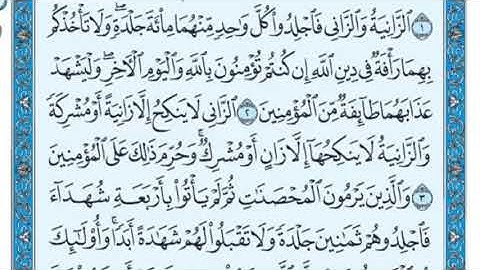 ١ ٱلزَّانِيَةُ وَٱلزَّانِى فَٱجْلِدُوا۟ كُلَّ وَٰحِدٍ مِّنْهُمَا مِا۟ئَةَ جَلْدَةٍ ۖ وَلَا تَأْخُذْكُم
بِهِمَا رَأْفَةٌ فِى دِينِ ٱللَّهِ إِن كُنتُمْ تُؤْمِنُونَ بِٱللَّهِ وَٱلْيَوْمِ ٱلْءَاخِرِ ۖ وَلْيَشْهَدْ
عَذَابَهُمَا طَآئِفَةٌ مِّنَ ٱلْمُؤْمِنِينَ ٢ ٱلزَّانِى لَا يَنكِحُ إِلَّا زَانِيَةً أَوْ مُشْرِكَةً
وَٱلزَّانِيَةُ لَا يَنكِحُهَآ إِلَّا زَانٍ أَوْ مُشْرِكٌ ۚ وَحُرِّمَ ذَٰلِكَ عَلَى ٱلْمُؤْمِنِينَ
٣ وَٱلَّذِينَ يَرْمُونَ ٱلْمُحْصَنَٰتِ ثُمَّ لَمْ يَأْتُوا۟ بِأَرْبَعَةِ شُهَدَآءَ
فَٱجْلِدُوهُمْ ثَمَٰنِينَ جَلْدَةً وَلَا تَقْبَلُوا۟ لَهُمْ شَهَٰدَةً أَبَدًا ۚ وَأُو۟لَٰٓئِكَ